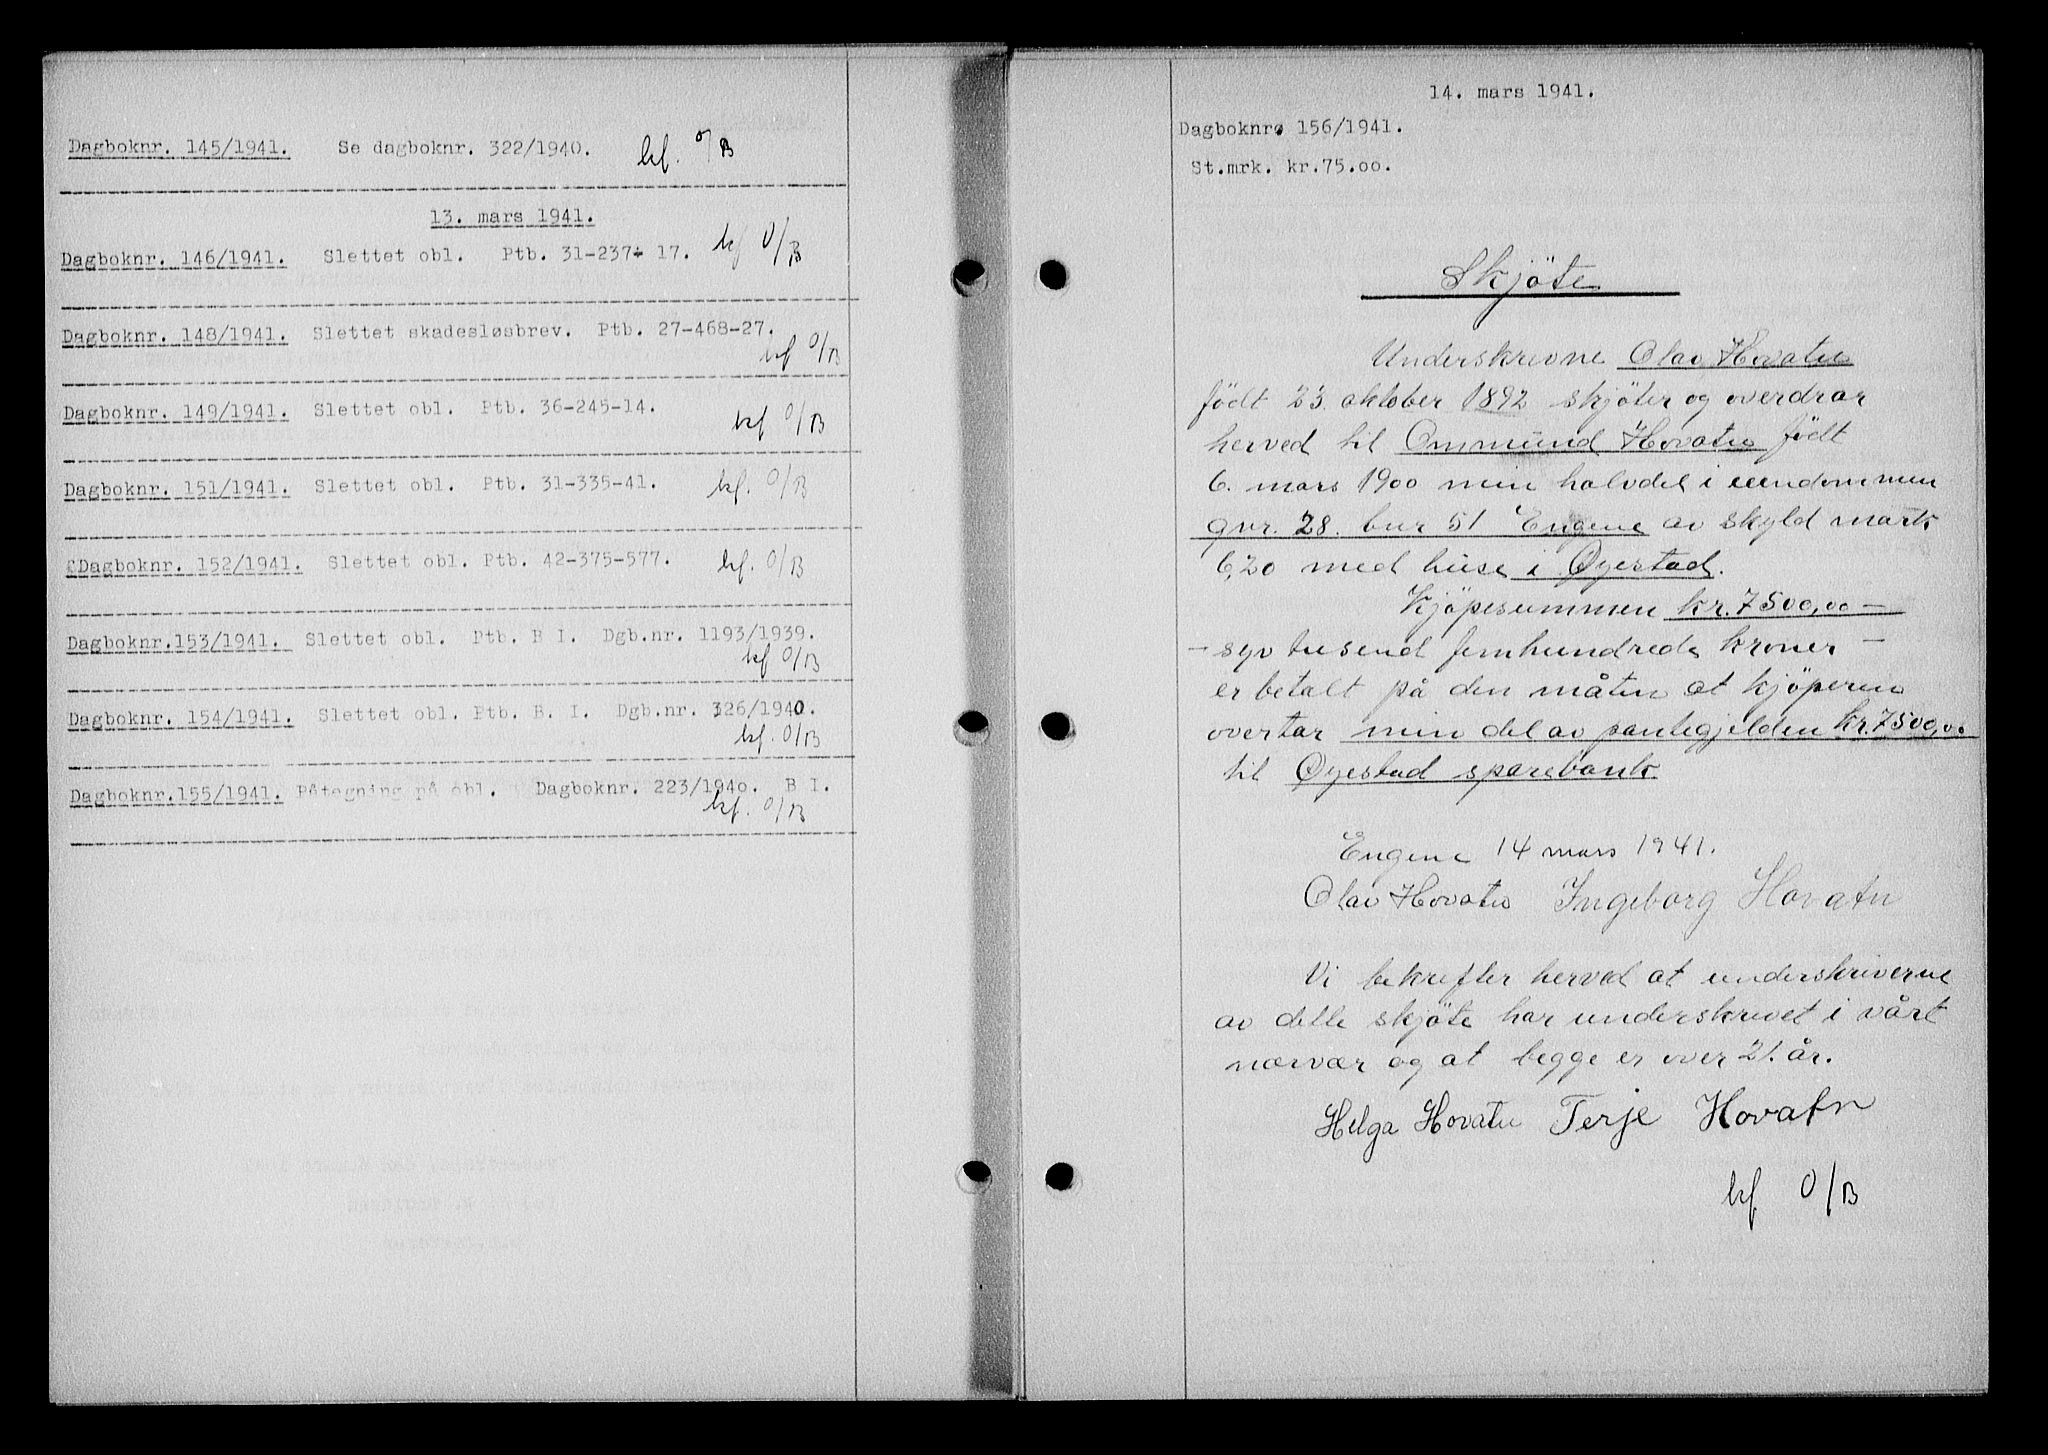 Dagboknr. 145/1941. Se dagboknr. 322/1940. kf. O/B
13. mars 1941.
Dagboknr. 146/1941. Slettet obl. Ptb. 31-237- 17. kf O/B
Dagboknr. 148/1941. Slettet skadesløsbrev. Ptb. 27-468-27.
kf O/B
Dagboknr. 149/1941. Slettet obl. Ptb. 36-245-14.
kf O/B
Dagboknr. 151/1941. Slettet obl. Ptb. 31-335-41. kf. O/B
Dagboknr. 152/1941. Slettet obl. Ptb. 42-375-577. kf. O/B
Dagboknr.153/1941. Slettet obl. Ptb. B I. Dgb.nr. 1193/1939.
kf O/B
Dagboknr. 154/1941. Slettet obl. Ptb. B. I. Dgb.nr. 326/1940.
kf. O/B
Dagboknr.155/1941. Påtegning på obl. Dagboknr. 223/1940. B I.
kf. O/B
14. mars 1941.
Dagboknr. 156/1941.
St.mrk. kr.75.00.
Skjöte
Underskrevne Olav Hovatn
födt 23. oktober 1892 skjöter og overdrar
herved til Ommund Hovatn födt
6. mars 1900 min halvdel i eiendommen
gnr. 28. bnr 51 Engene av skyld mark
6,20 med huse i Øyestad.
Kjöpesummen kr. 7500,00 —
— syv tusend femhundrede kroner —
er betalt på den måten at kjöperen
overtar min del av pantegjelden kr. 7500,00
til Øyestad sparebank.
Engene 14 mars 1941.
Olav Hovatn Ingeborg Hovatn
Vi bekrefter herved at underskriverne
av dette skjöte har underskrevet i vårt
nærvær og at begge er over 21. år.
Helga Hovatn Terje Hovatn
kf O/B